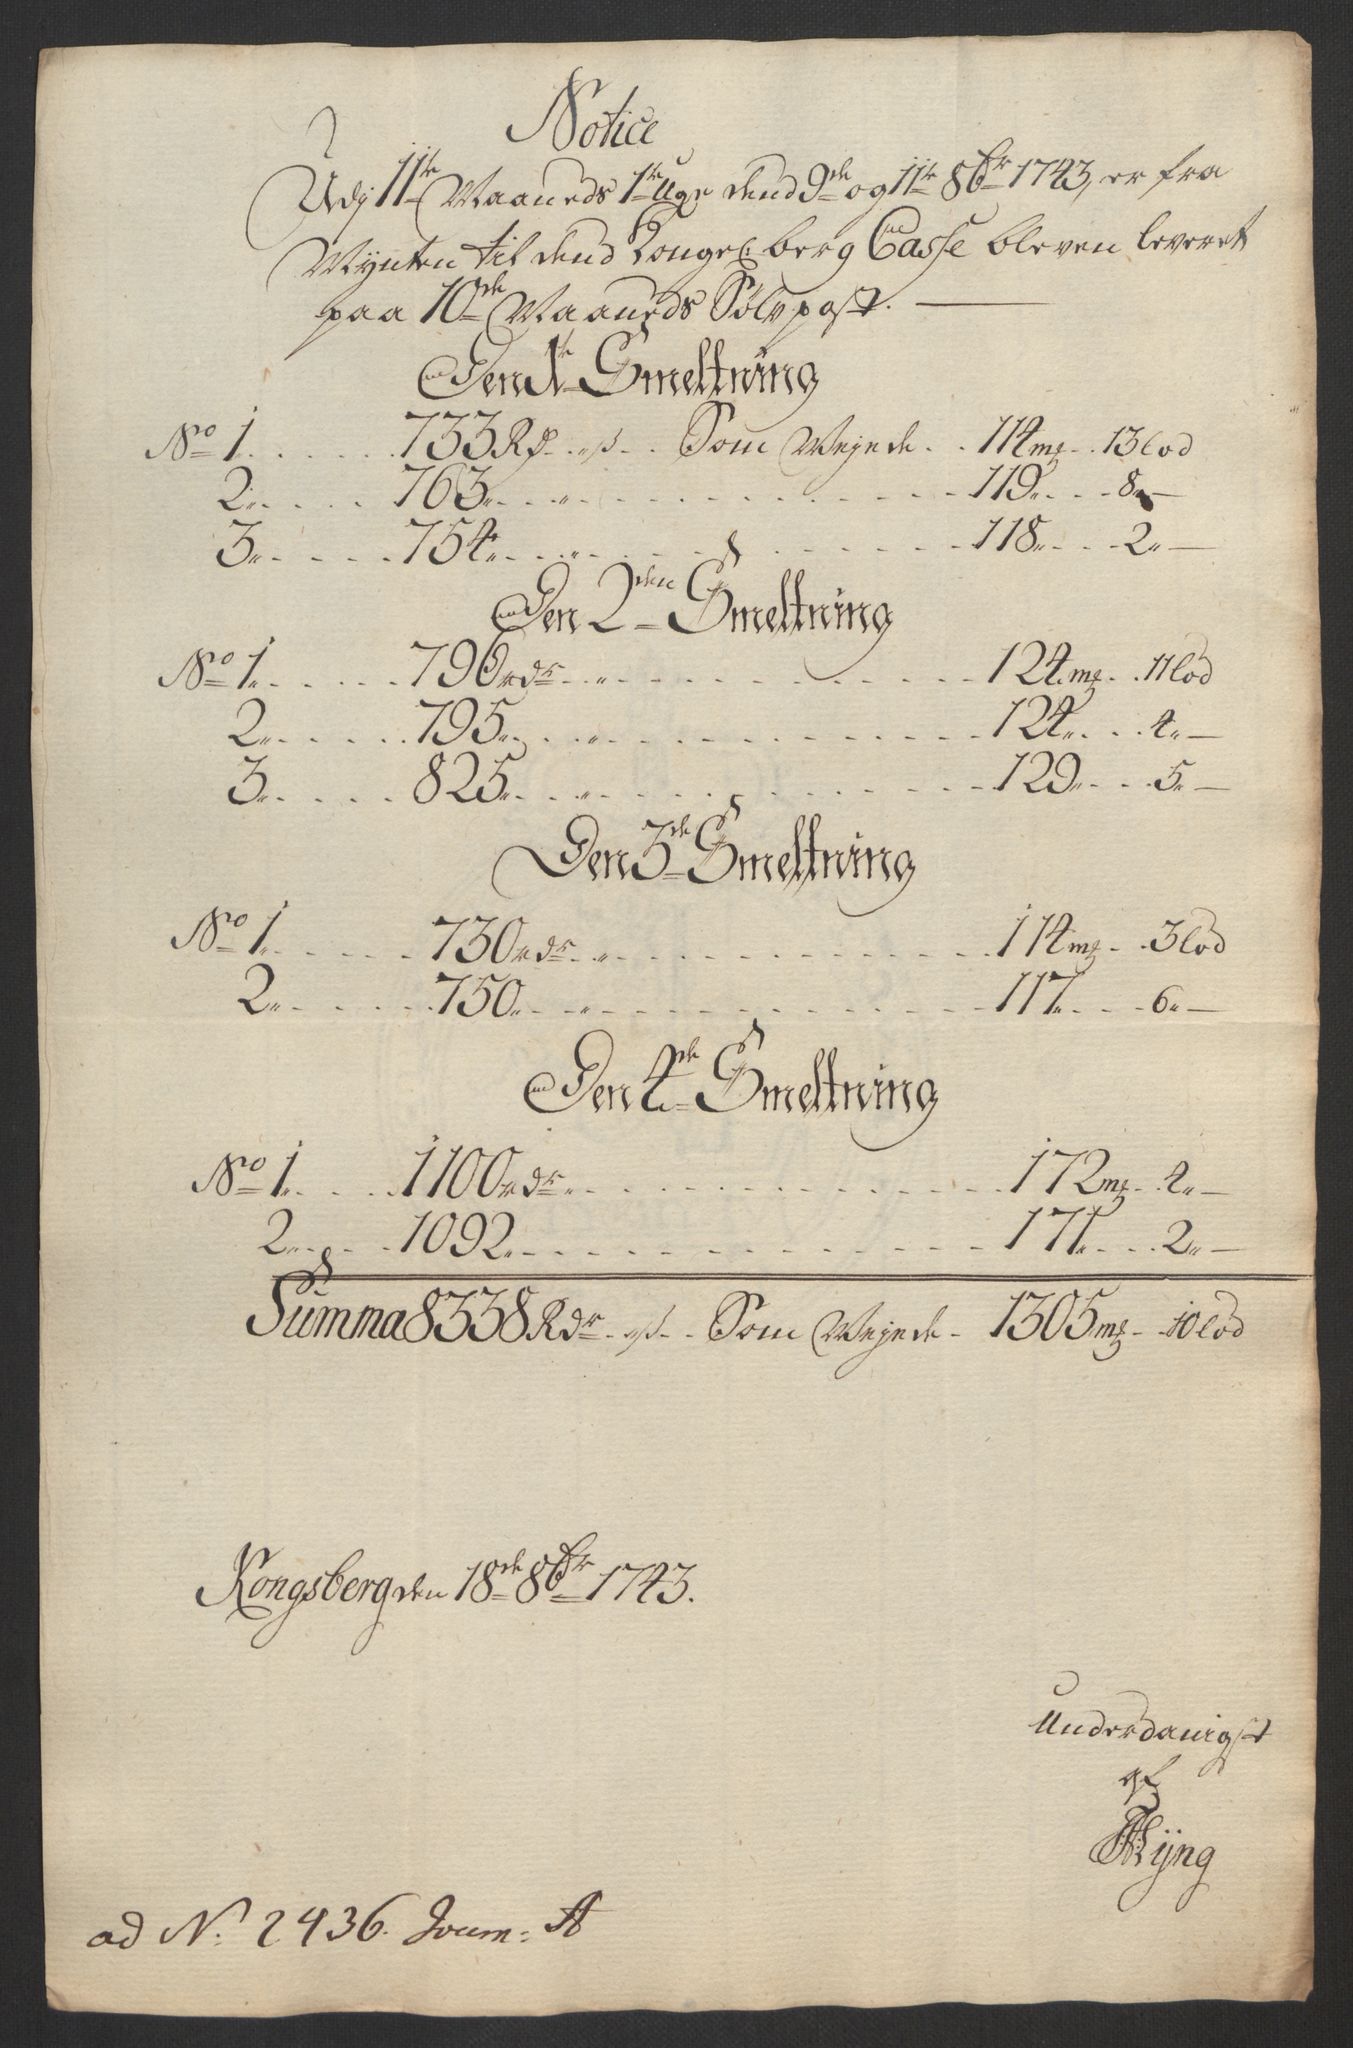 Notice
Udj 11te Maaneds 1te Uge dend 9de og 11te 8br 1743, er fra
Mynten til dend Kongel: berg Casse bleven leveret
paa 10de Maaneds Sölvpost.
Den 1te Smeltning
No 1. 733 Rd - " ß - Som Wejede 114 mg 13 lod
2 " 763 " - " - 119 " 8 " -
3 " 754 " - " - 118 " 2 " -
Den 2den Smeltning
No 1 " 796 rdr - " - 124 mg 11 lod
2 " 795 " - " - 124 " 4 " -
3 " 825 " - " - 129 " 5 " -
Den 3de Smeltning
No 1 " 730 rdr - " - 114 mg 3 lod
2 " 750 " - " - 117 " 6 " -
Den 4de Smeltning
No 1 " 1100 rdr " - 172 mg 4 " -
2 " 1092 " - 171 " 2 " -
Summa 8338 Rdr - " ß - Som Wejede - 1305 mg - 10 lod
Kongsberg den 18de 8br 1743.
Underdanigst
af
ad N: 2436. Journ: A